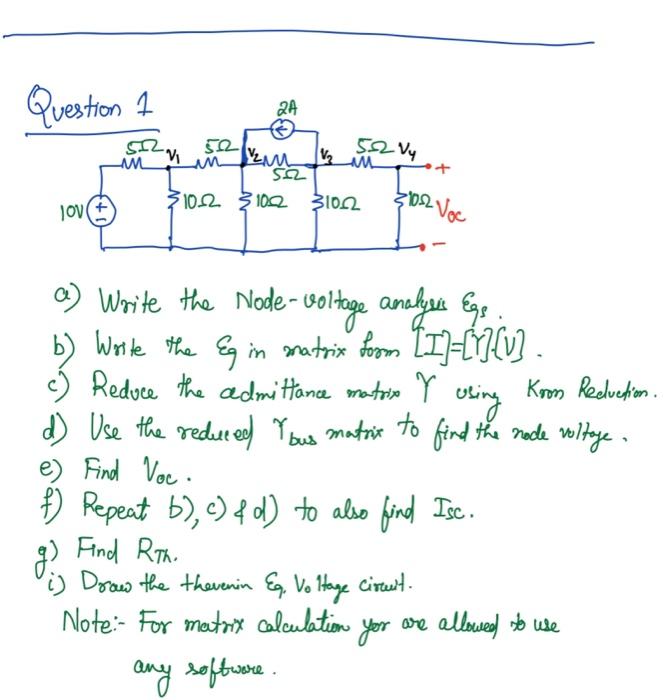 Question 1
2A
5Ω V₁ 5Ω V₂ 5Ω V₃ 5Ω V₄ +
10V 10Ω 10Ω 10Ω 10Ω Voc
-
a) Write the Node-voltage analysis Eqs.
b) Write the Eq in matrix form [I]=[Y][V].
c) Reduce the admittance matrix Y using Kron Reduction.
d) Use the reduced Ybus matrix to find the node voltage.
e) Find Voc.
f) Repeat b), c) & d) to also find Isc.
g) Find RTh.
i) Draw the thevenin Eq. Voltage circuit.
Note:- For matrix calculation you are allowed to use
any software.